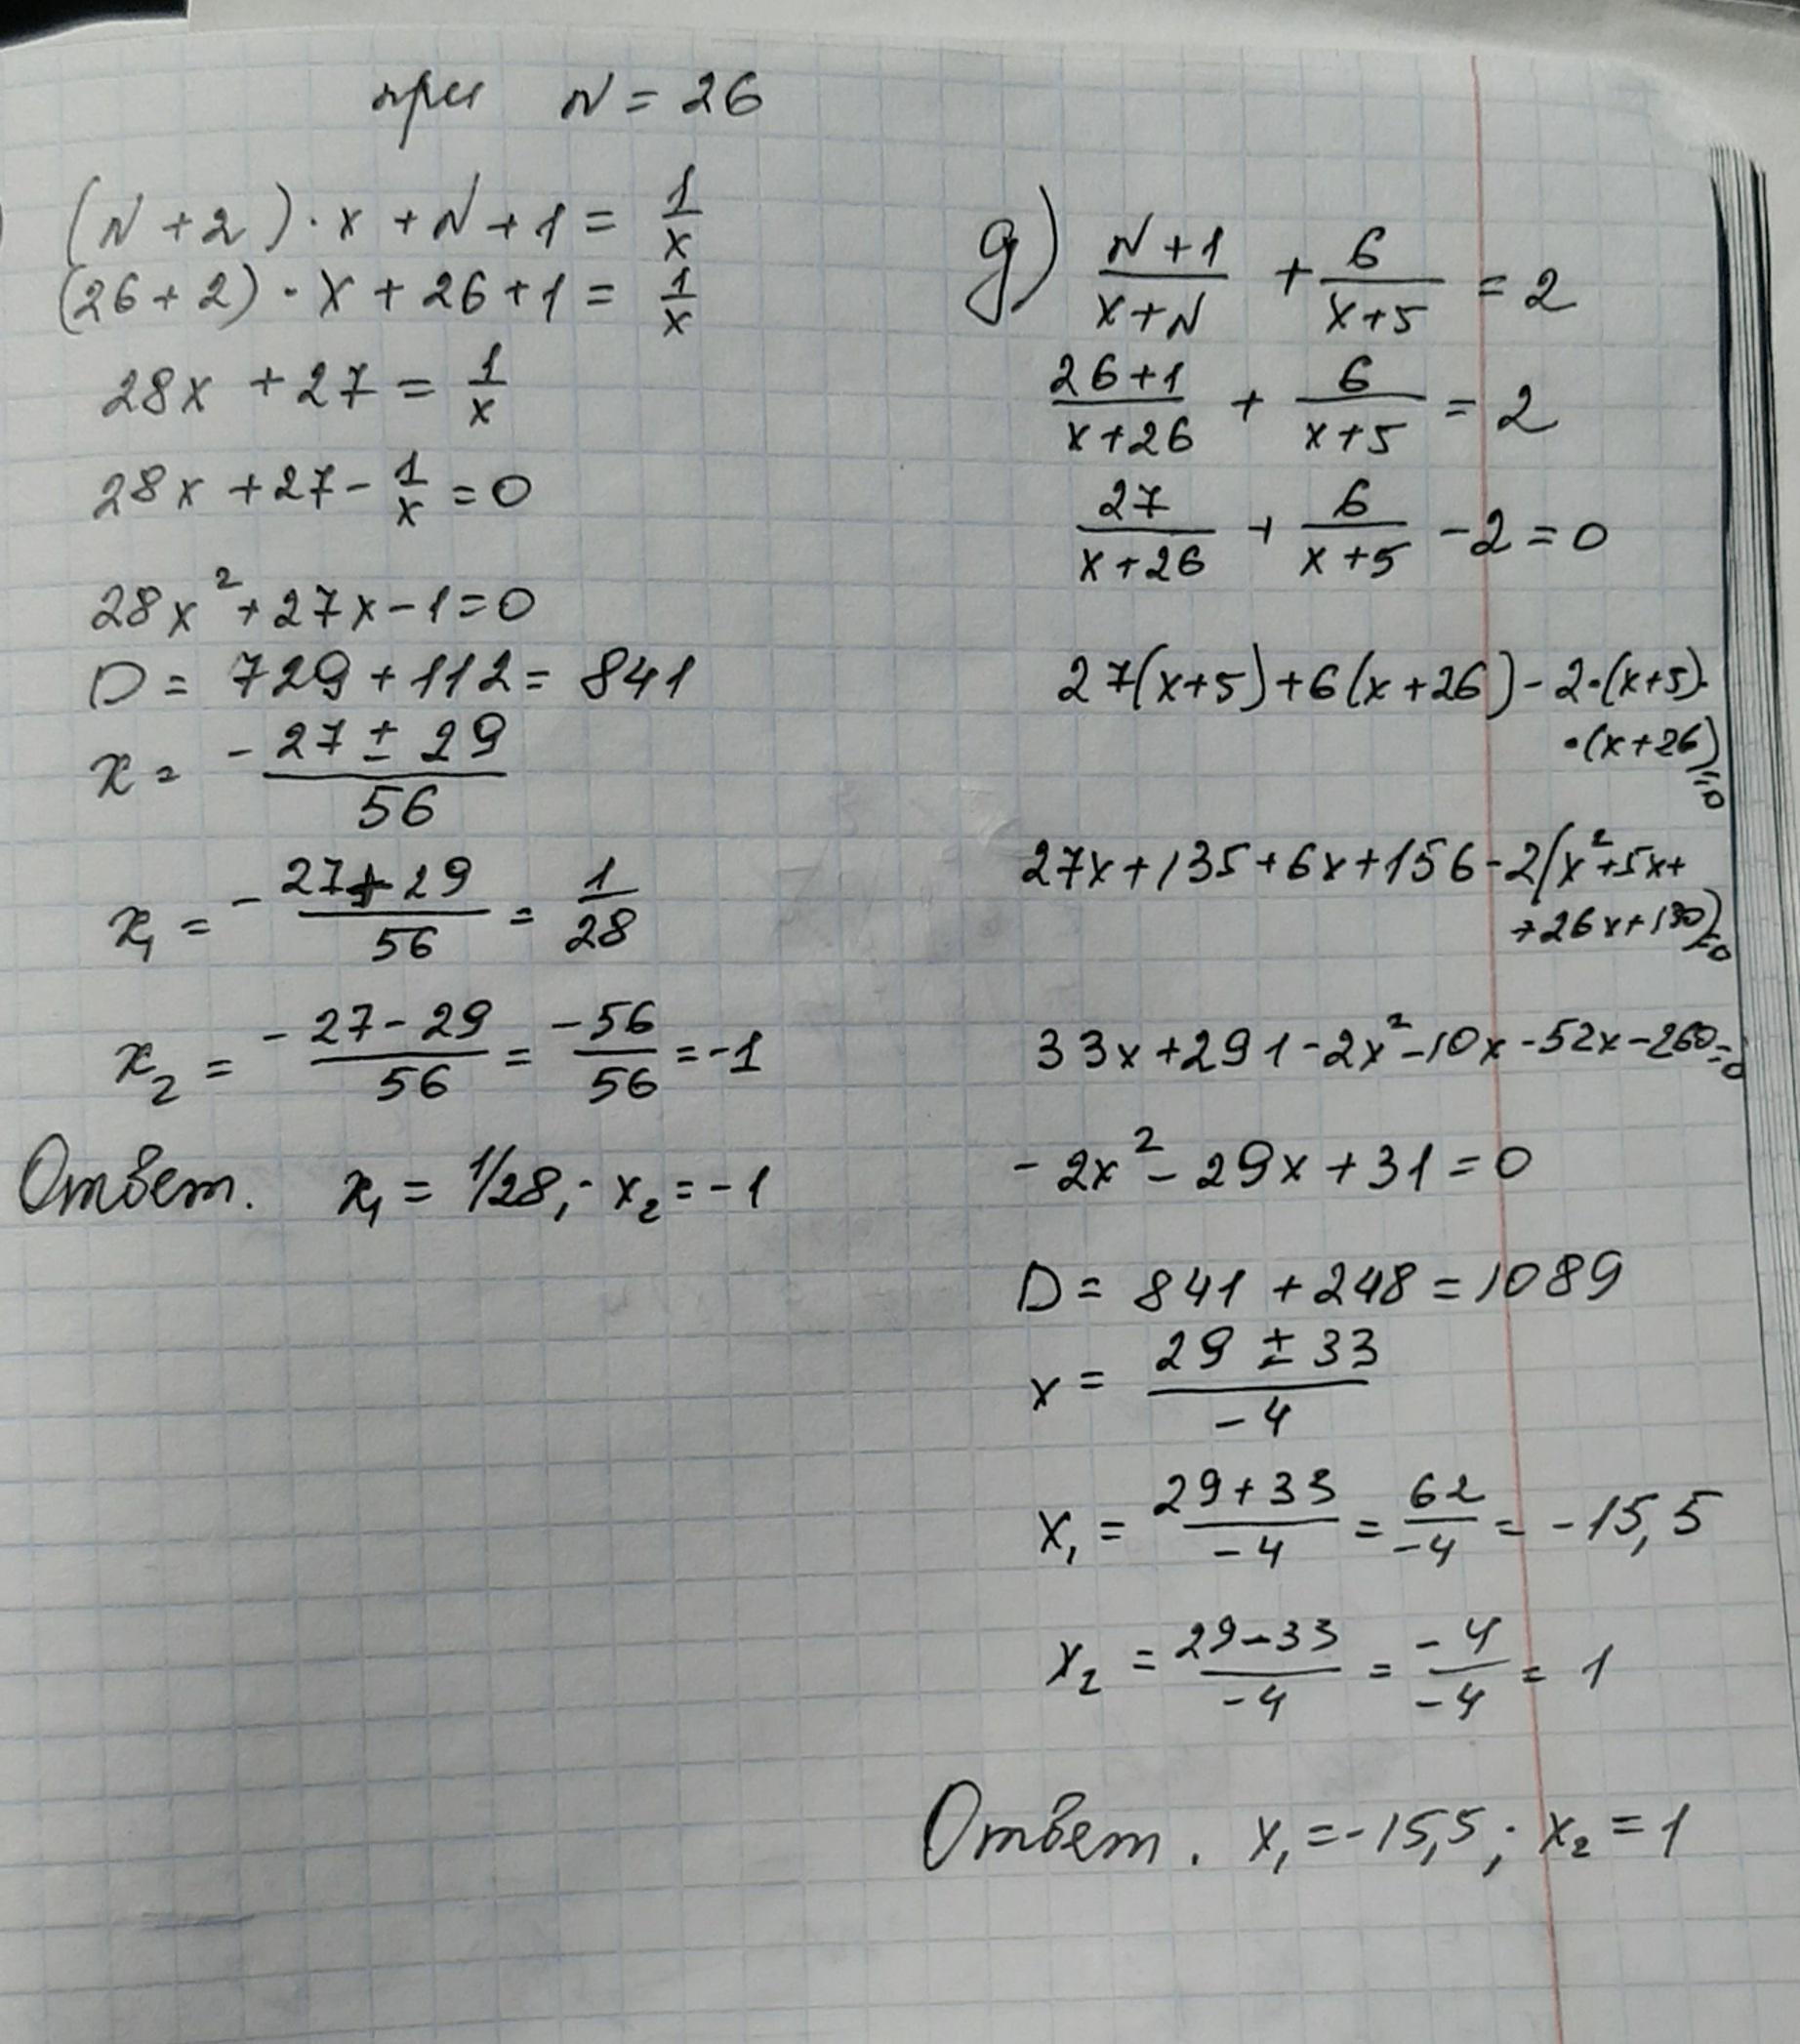 при N = 26
(N + 2) · x + N + 1 = 1/x
(26 + 2) · x + 26 + 1 = 1/x
28x + 27 = 1/x
28x + 27 - 1/x = 0
28x² + 27x - 1 = 0
D = 729 + 112 = 841
x = -27 ± 29 / 56
x₁ = -27 + 29 / 56 = 1/28
x₂ = -27 - 29 / 56 = -56/56 = -1
Ответ. x₁ = 1/28; x₂ = -1
g) N + 1 / x + N + 6 / x + 5 = 2
26 + 1 / x + 26 + 6 / x + 5 = 2
27 / x + 26 + 6 / x + 5 - 2 = 0
27(x + 5) + 6(x + 26) - 2 · (x + 5) ·
· (x + 26) = 0
27x + 135 + 6x + 156 - 2(x² + 5x +
+ 26x + 130) = 0
33x + 291 - 2x² - 10x - 52x - 260 = 0
- 2x² - 29x + 31 = 0
D = 841 + 248 = 1089
x = 29 ± 33 / -4
x₁ = 29 + 33 / -4 = 62 / -4 = -15,5
x₂ = 29 - 33 / -4 = -4 / -4 = 1
Ответ. x₁ = -15,5; x₂ = 1